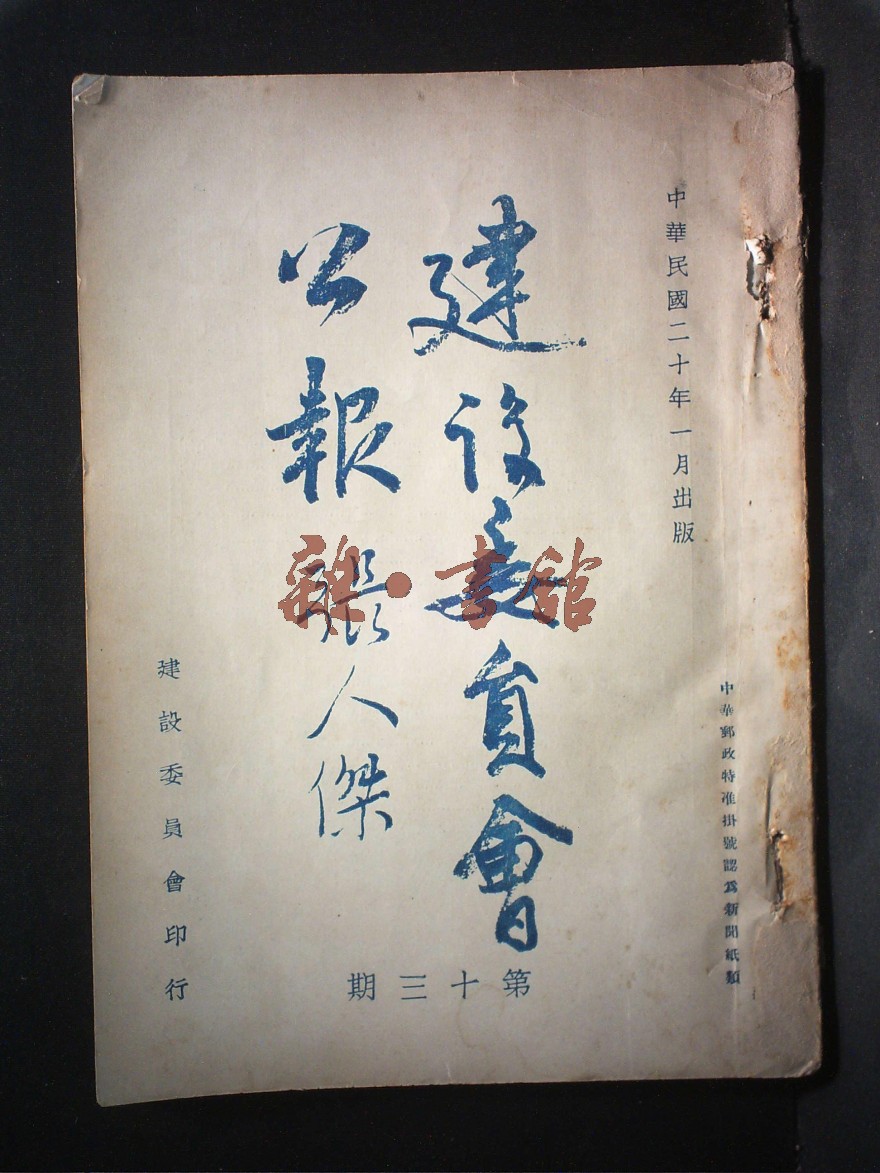 中華民國二十年一月出版
中華郵政特准掛號認爲新聞紙類
建設委員會
公報
張人傑
第十三期
建設委員會印行
雜·書館